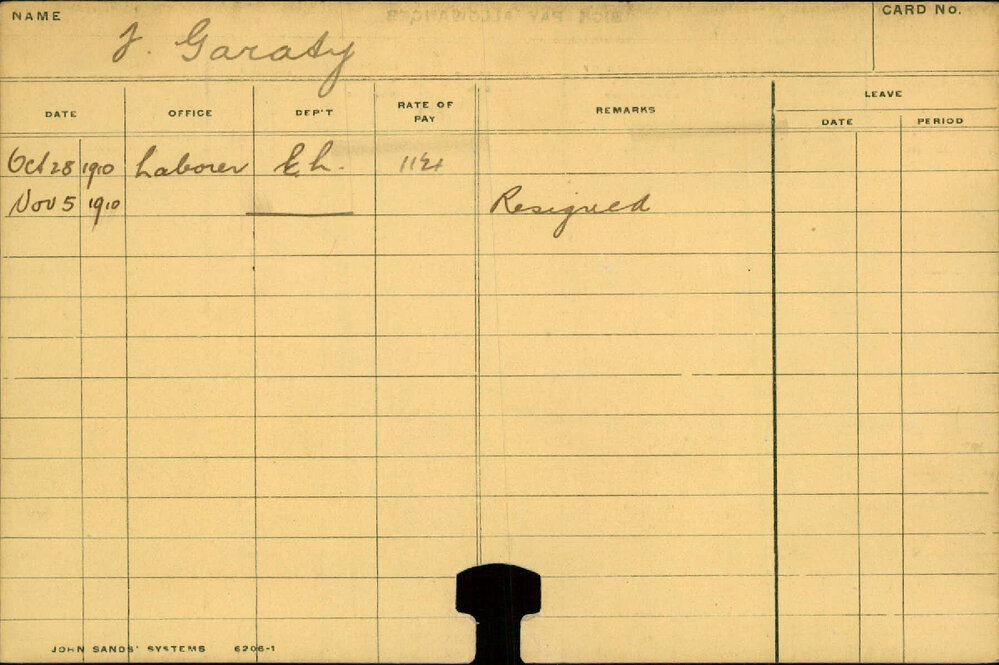 NAME
CARD No.
J. Garaty
DATE OFFICE DEP'T RATE OF PAY REMARKS LEAVE
DATE PERIOD
Oct 28 1910 Laborer E.L.
Nov 5 1910 Resigned
JOHN SANDS' SYSTEMS 6206-1